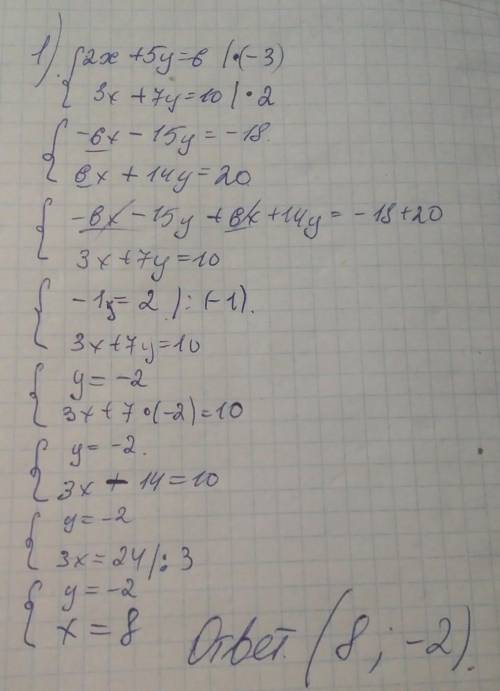 1) { 2x + 5y = 6 | • (-3)
3x + 7y = 10 | • 2
{ -6x - 15y = -18.
6x + 14y = 20
{ -6x - 15y + 6x + 14y = -18 + 20
3x + 7y = 10
{ -1y = 2 | : (-1).
3x + 7y = 10
{ y = -2
3x + 7 • (-2) = 10
{ y = -2.
3x - 14 = 10
{ y = -2
3x = 24 | : 3
{ y = -2
x = 8
Ответ (8 ; -2).